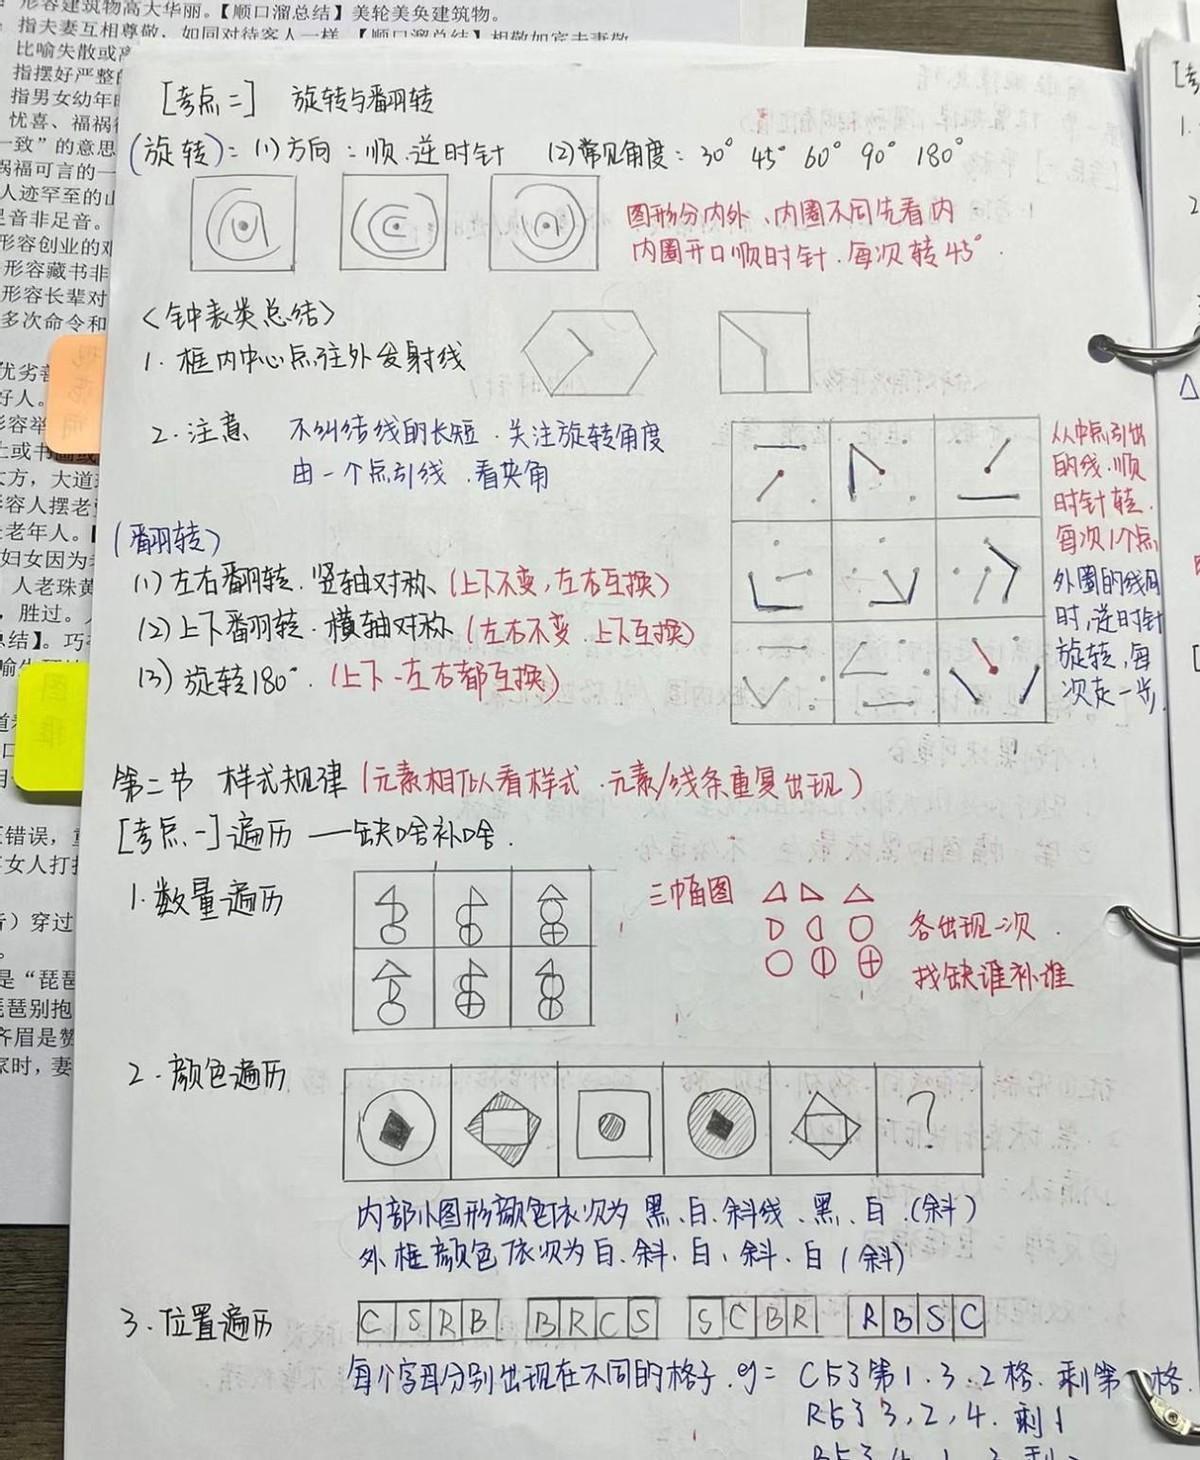 形容建筑物高大华丽。【顺口溜总结】美轮美奂建筑物。
指夫妻互相尊敬，如同对待客人一样。【顺口溜总结】相敬如宾夫妻敬
比喻失散或
指摆好严整
指男女幼年
忧喜、福祸
一致”的意思
祸福可言的一
人迹罕至的山
足音非足音。
形容创业的艰
形容藏书非
形容长辈对
多次命令和
优劣
好人。
形容举
大方，大道
形容人摆老
老年人。
妇女因为
人老珠黄
，胜过。
总结】。巧
错误，
女人打扮
）穿过
是“琵琶
琵琶别抱
齐眉是赞
家时，妻
[考点二] 旋转与翻转
(旋转)：(1)方向：顺.逆时针 (2)常见角度：30° 45° 60° 90° 180°
图形分内外、内圈不同先看内
内圈开口顺时针.每次转45°.
<钟表类总结>
1.框内中心点往外发射线
2.注意 不纠结线的长短.关注旋转角度
由一个点引线.看夹角
从中点引出
的线.顺
时针转.
每次1个点
外圈的线同
时,逆时针
旋转,每
次走一步.
(翻转)
(1)左右翻转.竖轴对称(上下不变,左右互换)
(2)上下翻转.横轴对称(左右不变.上下互换)
(3)旋转180°.(上下-左右都互换)
第二节 样式规律(元素相似看样式.元素/线条重复出现)
[考点一]遍历 —缺啥补啥.
1.数量遍历
三幅图
各出现一次.
找缺谁补谁
2.颜色遍历
?
内部小图形颜色依次为 黑、白、斜线、黑、白.(斜)
外框颜色依次为白、斜、白、斜、白(斜)
3.位置遍历 C S R B B R C S S C B R R B S C
每个字母分别出现在不同的格子.eg= C占了第1.3.2格.剩第一格.
R占了3,2,4.剩1